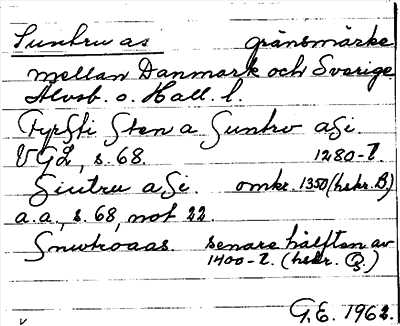 Suntru as gränsmärke
mellan Danmark och Sverige
Älvsb. o. Hall. l.
Fyrsti Sten a Suntru asi.
VGL, s. 68. 1280-t.
Siutru asi. omkr. 1350 (hskr. B)
a.a., s. 68, not 22.
Snwtroaas. senare hälften av
1400-t. (hskr. )
G.E. 1962.